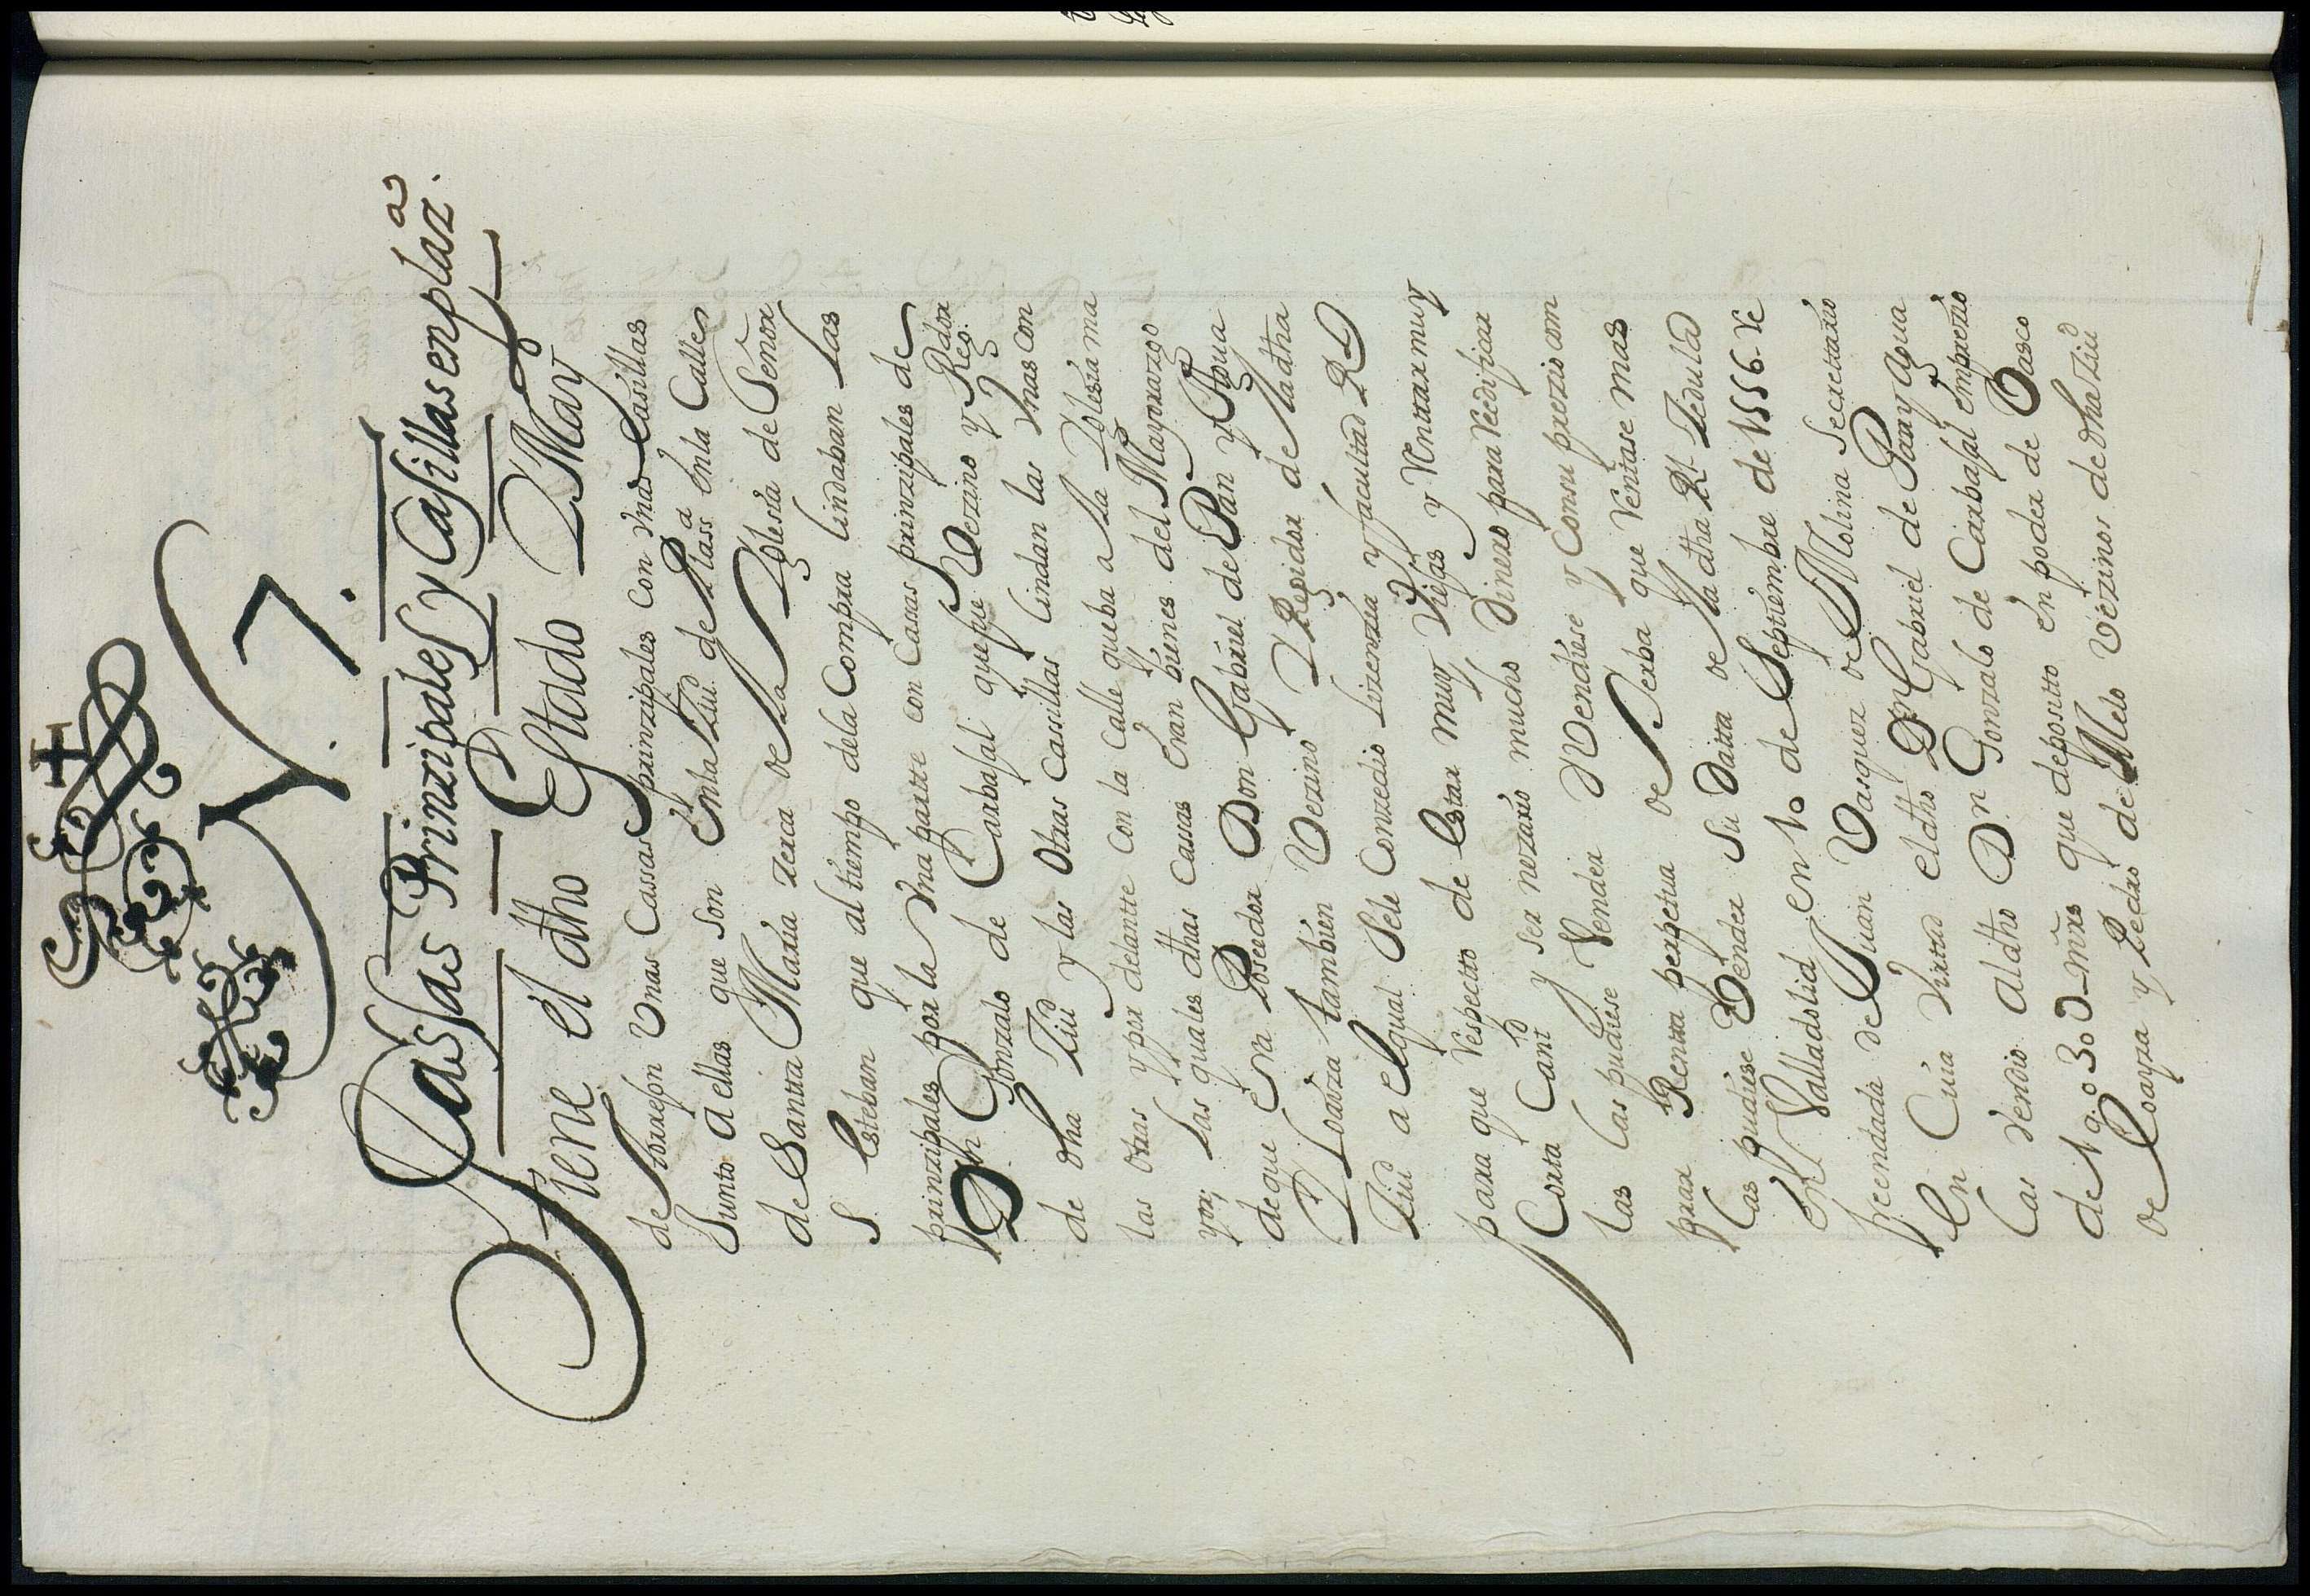 Y.
Cassas Prinzipales y Casillas en plaz.ª
Tiene el dho Estado y May
de torrejon Unas Cassas prinzipales con Unas Casillas
Junto a ellas que son en la Ziu.d de Plass.ª en la Calle
de Santta Maria zerca de la Yglesia de Señor
S Esteban que al tiempo de la Compra lindaban las
prinzipales por la Una partte con Casas prinzipales de
Dn Gonzalo de Carbajal que fue Vezino y Reg.dor
de dha Ziu.d y las otras Cassillas lindan las Unas con
las otras y por delantte con la Calle que ba a la Yglesia ma
yor; las quales dhas Cassas eran bienes del Mayorazgo
de que era Poseedor Don Gabriel de Pan y Agua
y Loaysa tambien Vezino y Regidor de la dha
Ziu.d a el qual Sele Conzedio Lizenzia y facultad Rl
para que respectto de estar muy Viejas y Venttar muy
Corta Cant.d y ser nezario mucho Dinero para reedificar
las las pudiese Vender y Vendiese y Con su prezio com
prar Rentta perpetua de Yerba que Renttase mas
las pudiese Vender Su Datta de la dha Rl Zedula
en Valladolid en 10 de Septiembre de 1556. re
frendada de Juan Vasquez de Molina Secretario
En Cuia Virttud el dho Dn Gabriel de Pan y Agua
las Vendio al dho Dn Gonzalo de Carbajal en prezio
de 1 q.o 30 U mrs que deposito en poder de Vasco
de Loarza y Pedro de Melo Vezinos de dha Ziu.d